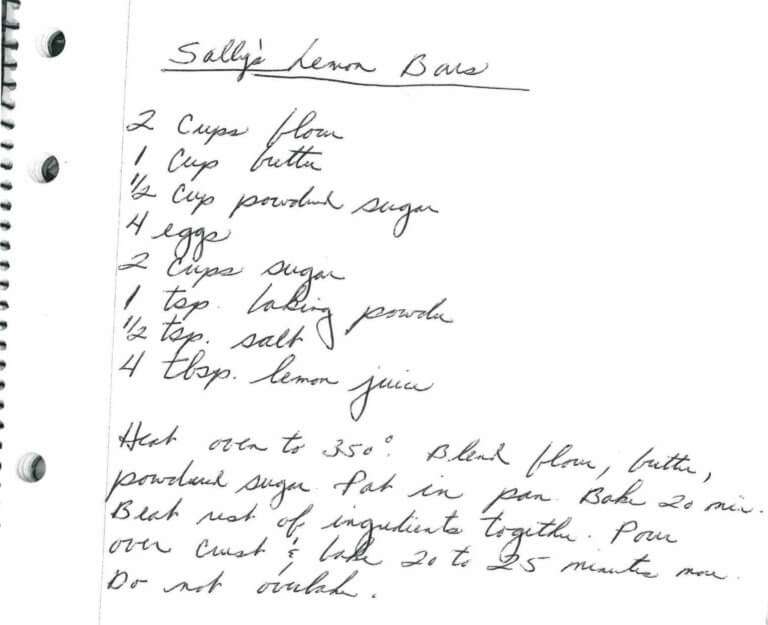 Sally's Lemon Bars
2 cups flour
1 cup butter
1/2 cup powdered sugar
4 eggs
2 cups sugar
1 tsp. baking powder
1/2 tsp. salt
4 tbsp. lemon juice
Heat oven to 350°. Blend flour, butter,
powdered sugar. Pat in pan. Bake 20 min.
Beat rest of ingredients together. Pour
over crust & bake 20 to 25 minutes more.
Do not overbake.